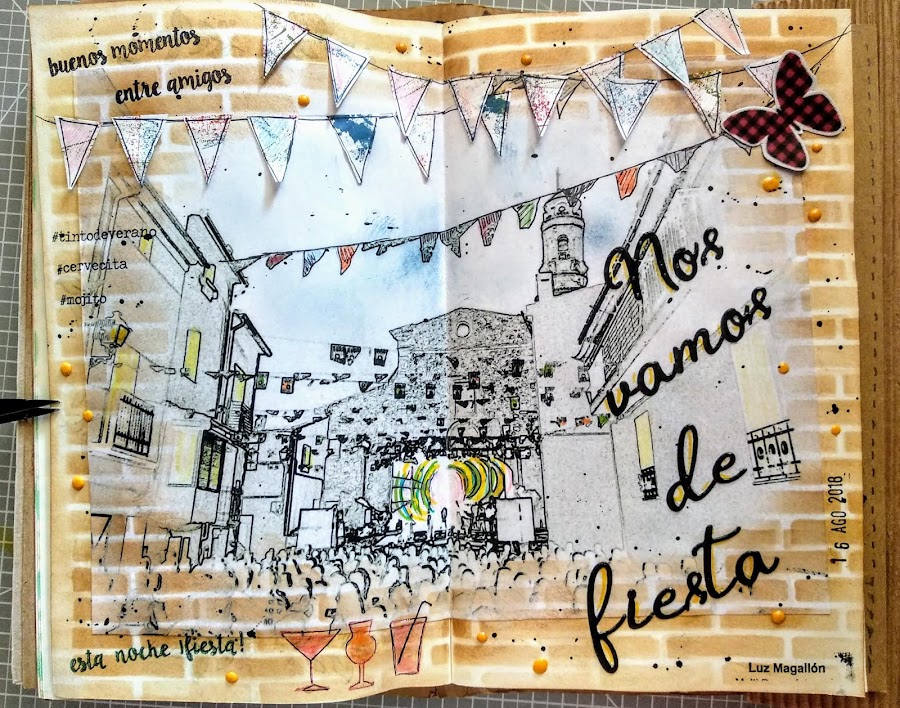 buenos momentos
entre amigos
#tintodeverano
#cervecita
#mojito
Nos
vamos
de
fiesta
16 AGO 2018
esta noche ¡fiesta!
Luz Magallón